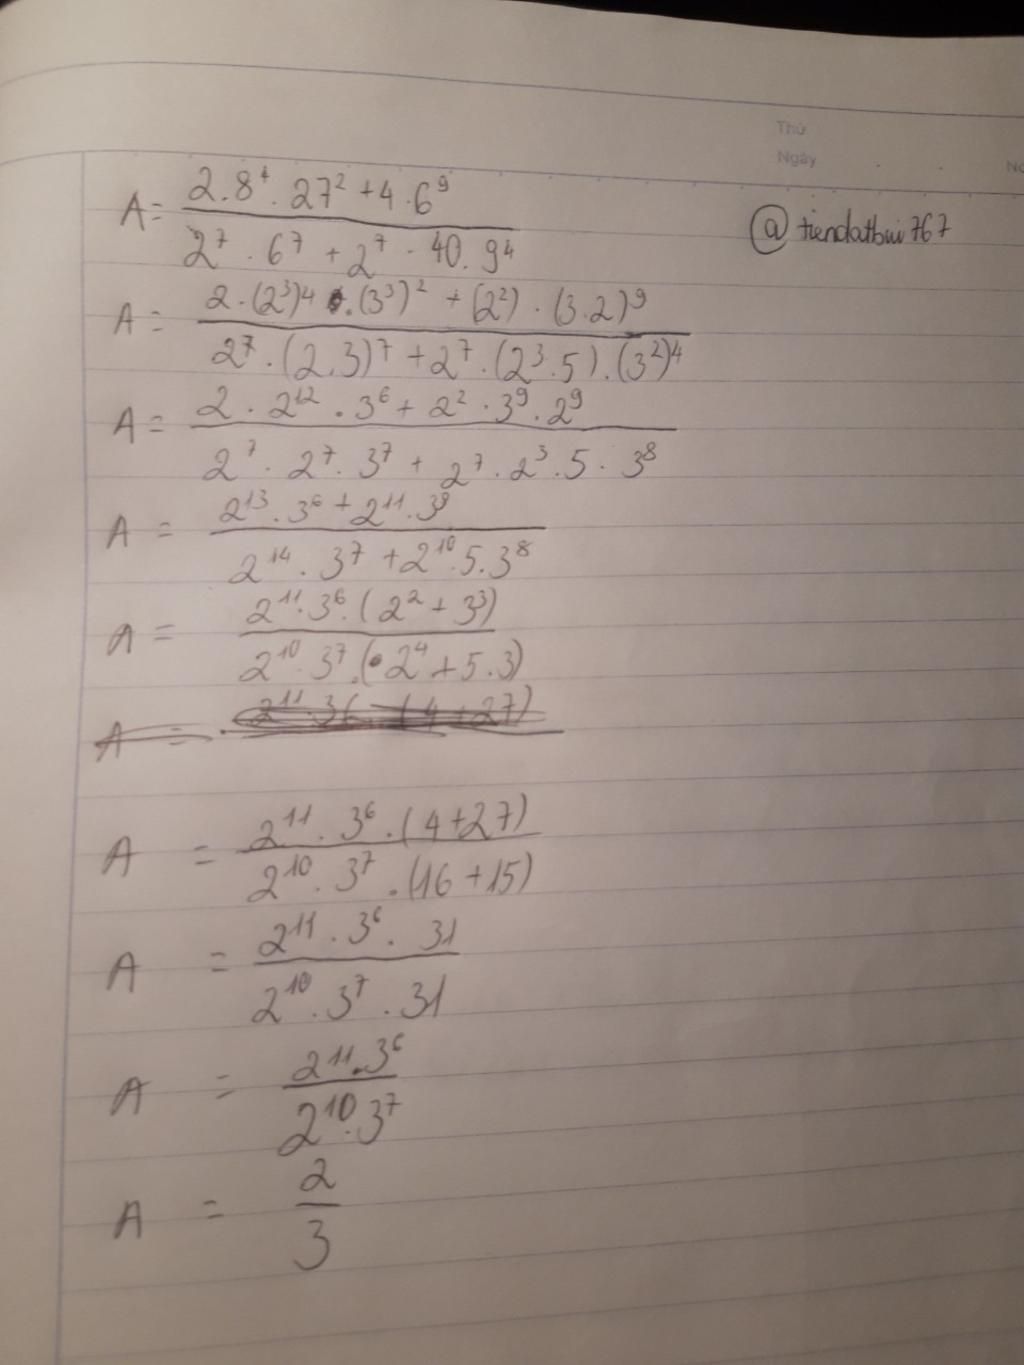 Thứ
Ngày
No
@tiendatbui767
A = \frac{2.8^4.27^2+4.6^9}{2^7.6^7+2^7.40.9^4}
A = \frac{2.(2^3)^4.(3^3)^2+(2^2).(3.2)^9}{2^7.(2.3)^7+2^7.(2^3.5).(3^2)^4}
A = \frac{2.2^{12}.3^6+2^2.3^9.2^9}{2^7.2^7.3^7+2^7.2^3.5.3^8}
A = \frac{2^{13}.3^6+2^{11}.3^9}{2^{14}.3^7+2^{10}.5.3^8}
A = \frac{2^{11}.3^6.(2^2+3^3)}{2^{10}.3^7.(2^4+5.3)}
A = 2^{11}.3^6.(4+27)
A = \frac{2^{11}.3^6.(4+27)}{2^{10}.3^7.(16+15)}
A = \frac{2^{11}.3^6.31}{2^{10}.3^7.31}
A = \frac{2^{11}.3^6}{2^{10}.3^7}
A = \frac{2}{3}